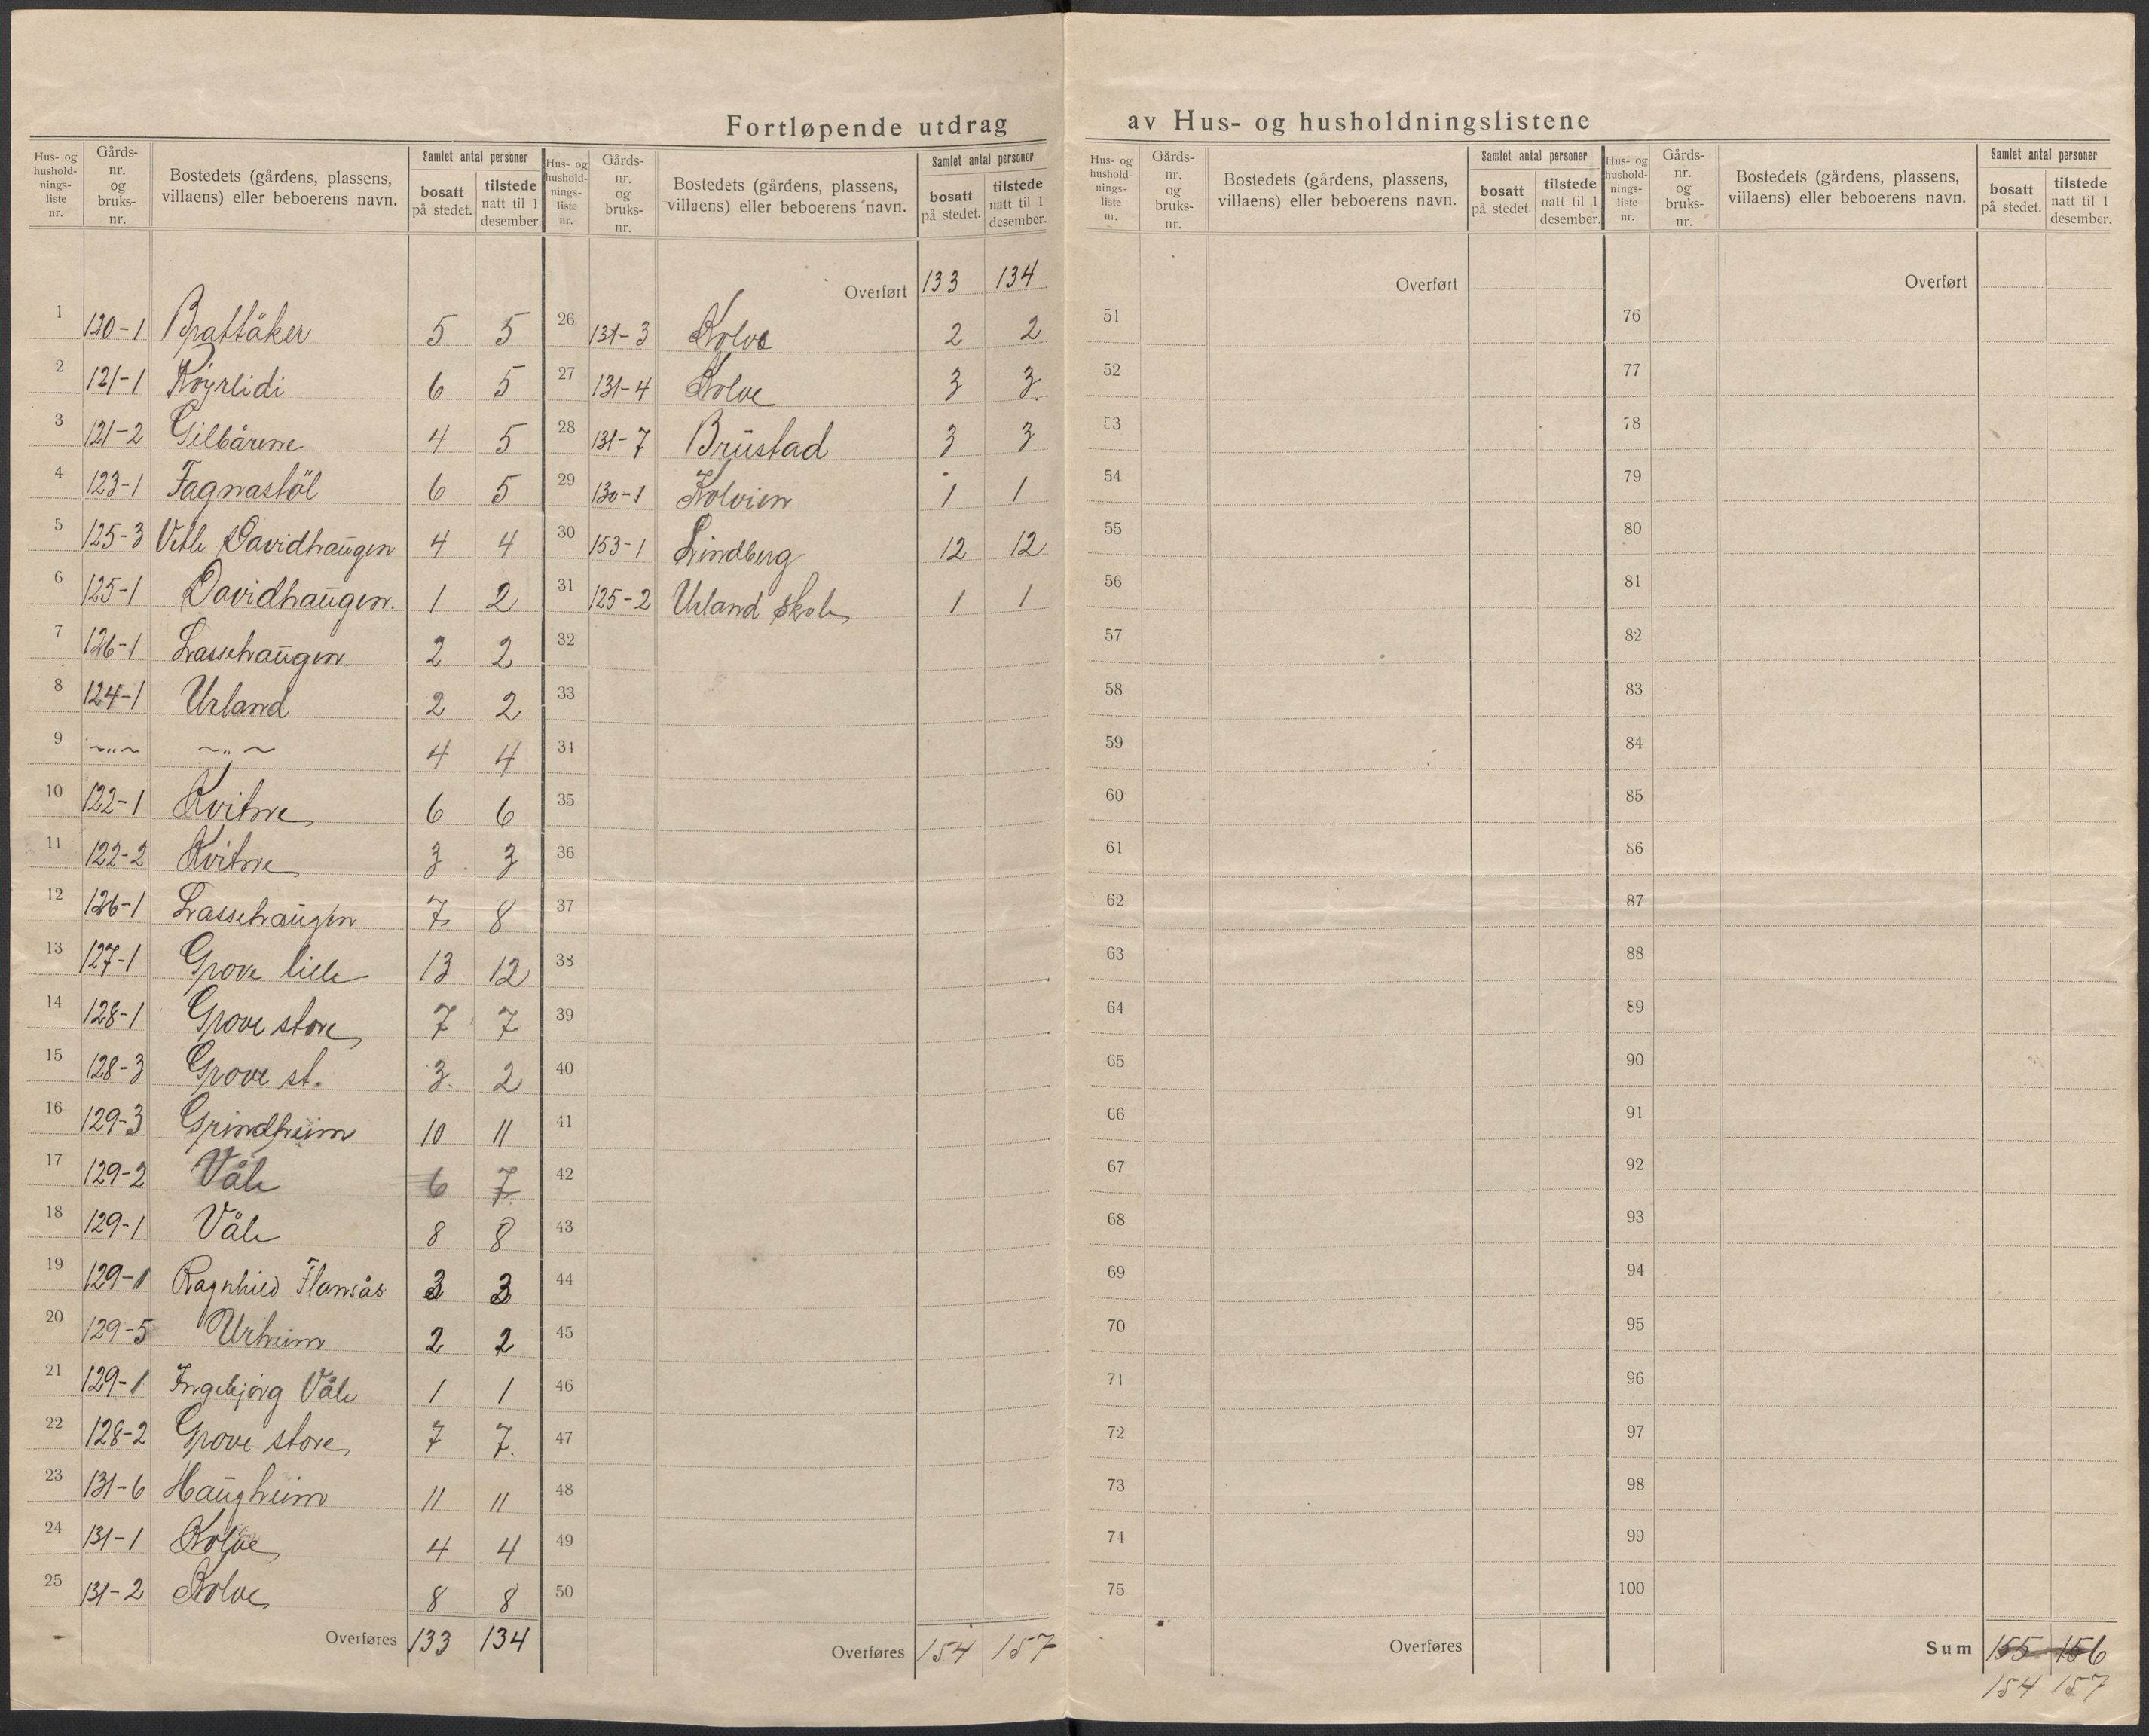 Fortløpende utdrag av Hus- og husholdningslistene
Hus- og hushold-nings-liste nr. Gårds-nr. og bruks-nr. Bostedets (gårdens, plassens, villaens) eller beboerens navn. Samlet antal personer bosatt på stedet. tilstede natt til 1 desember.
1 120-1 Brattåker 5 5
2 121-1 Röyrlidi 6 5
3 121-2 Gilbårene 4 5
4 123-1 Fagnastöl 6 5
5 125-3 Vetle Davidhaugen 4 4
6 125-1 Davidhaugen. 1 2
7 126-1 Lassehaugen. 2 2
8 124-1 Urland 2 2
9 ~„~ ~„~ 4 4
10 122-1 Kvitne 6 6
11 122-2 Kvitne 3 3
12 126-1 Lassehaugen 7 8
13 127-1 Grove lille 13 12
14 128-1 Grove store 7 7
15 128-3 Grove st. 3 2
16 129-3 Grindheim 10 11
17 129-2 Våle 6 7
18 129-1 Våle 8 8
19 129-1 Ragnhild Flansås 3 3
20 129-5 Urheim 2 2
21 129-1 Ingebjörg Våle 1 1
22 128-2 Grove store 7 7.
23 131-6 Haugheim 11 11
24 131-1 Kolve 4 4
25 131-2 Kolve 8 8
Overføres 133 134
Hus- og hushold-nings-liste nr. Gårds-nr. og bruks-nr. Bostedets (gårdens, plassens, villaens) eller beboerens navn. Samlet antal personer bosatt på stedet. tilstede natt til 1 desember.
Overført 133 134
26 131-3 Kolve 2 2
27 131-4 Kolve 3 3.
28 131-7 Brustad 3 3
29 130-1 Kolvien 1 1
30 153-1 Lindberg 12 12
31 125-2 Urland skole 1 1
32
33
34
35
36
37
38
39
40
41
42
43
44
45
46
47
48
49
50
Overføres 154 157
Hus- og hushold-nings-liste nr. Gårds-nr. og bruks-nr. Bostedets (gårdens, plassens, villaens) eller beboerens navn. Samlet antal personer bosatt på stedet. tilstede natt til 1 desember.
Overført
51
52
53
54
55
56
57
58
59
60
61
62
63
64
65
66
67
68
69
70
71
72
73
74
75
Overføres
Hus- og hushold-nings-liste nr. Gårds-nr. og bruks-nr. Bostedets (gårdens, plassens, villaens) eller beboerens navn. Samlet antal personer bosatt på stedet. tilstede natt til 1 desember.
Overført
76
77
78
79
80
81
82
83
84
85
86
87
88
89
90
91
92
93
94
95
96
97
98
99
100
Sum 155 156
154 157